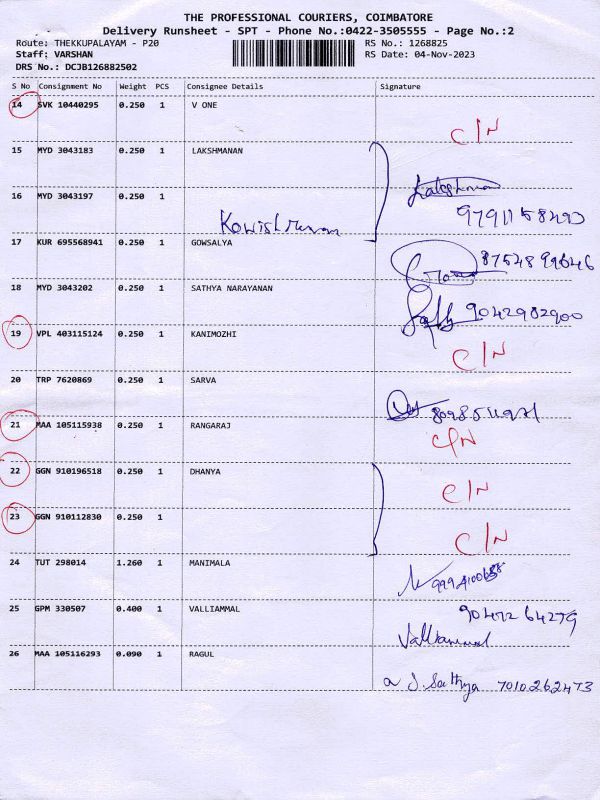 THE PROFESSIONAL COURIERS, COIMBATORE
Delivery Runsheet - SPT - Phone No.:0422-3505555 - Page No.:2
Route: THEKKUPALAYAM - P20
RS No.: 1268825
Staff: VARSHAN
RS Date: 04-Nov-2023
DRS No.: DCJB126882502
S No Consignment No Weight PCS Consignee Details Signature
14 SVK 10440295 0.250 1 V ONE
C/N
15 MYD 3043183 0.250 1 LAKSHMANAN
16 MYD 3043197 0.250 1
9791158493
17 KUR 695568941 0.250 1 GOWSALYA
8754899646
18 MYD 3043202 0.250 1 SATHYA NARAYANAN
9042982900
19 VPL 403115124 0.250 1 KANIMOZHI
C/N
20 TRP 7620869 0.250 1 SARVA
21 MAA 105115938 0.250 1 RANGARAJ
C/N
22 GGN 910196518 0.250 1 DHANYA
C/N
23 GGN 910112830 0.250 1
C/N
24 TUT 298014 1.260 1 MANIMALA
25 GPM 330507 0.400 1 VALLIAMMAL
Valliammal
26 MAA 105116293 0.090 1 RAGUL
J. Sathya 7010262473